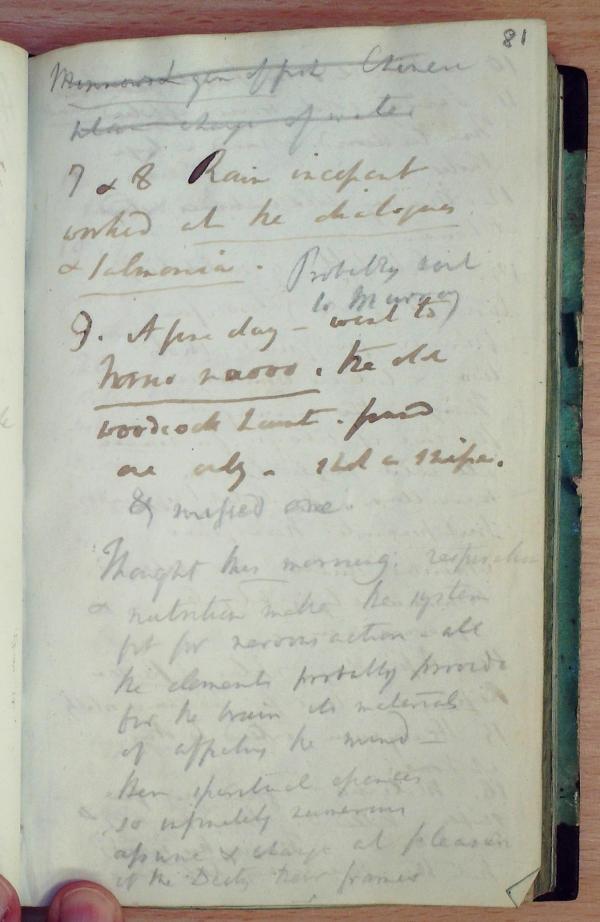 81
gen of fish Chinese
change of water
7 & 8 Rain incessant
worked at the dialogues
& Salmonia.
Probably sent
to Murray
9. A fine day – went to
the old
woodcock haunt. found
one only. Shot a snipe.
& missed one.
Thought this morning. respiration
& nutrition make the system
fit for nervous action – all
the elements probably provide
for the brain its materials
of affecting the mind –
then spiritual
so infinitely numerous
assume & change at pleasure
of the Deity their frames